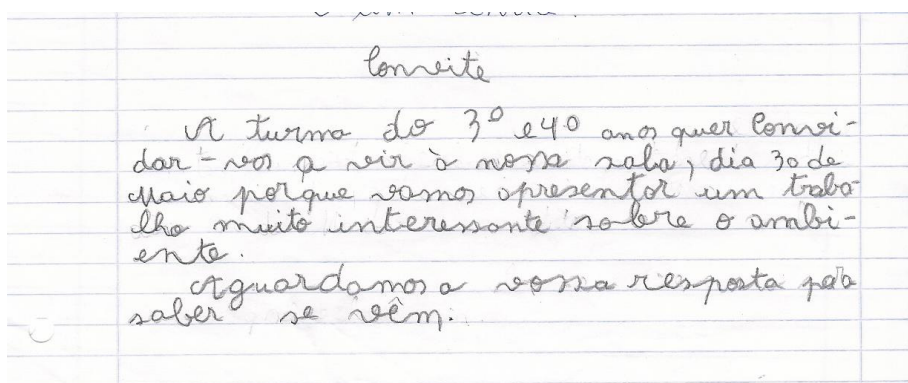 Convite
A turma do 3º e 4º anos quer convi-
dar-vos a vir à nossa sala, dia 30 de
Maio porque vamos apresentar um traba-
lho muito interessante sobre o ambi-
ente.
Aguardamos a vossa resposta para
saber se vêm.